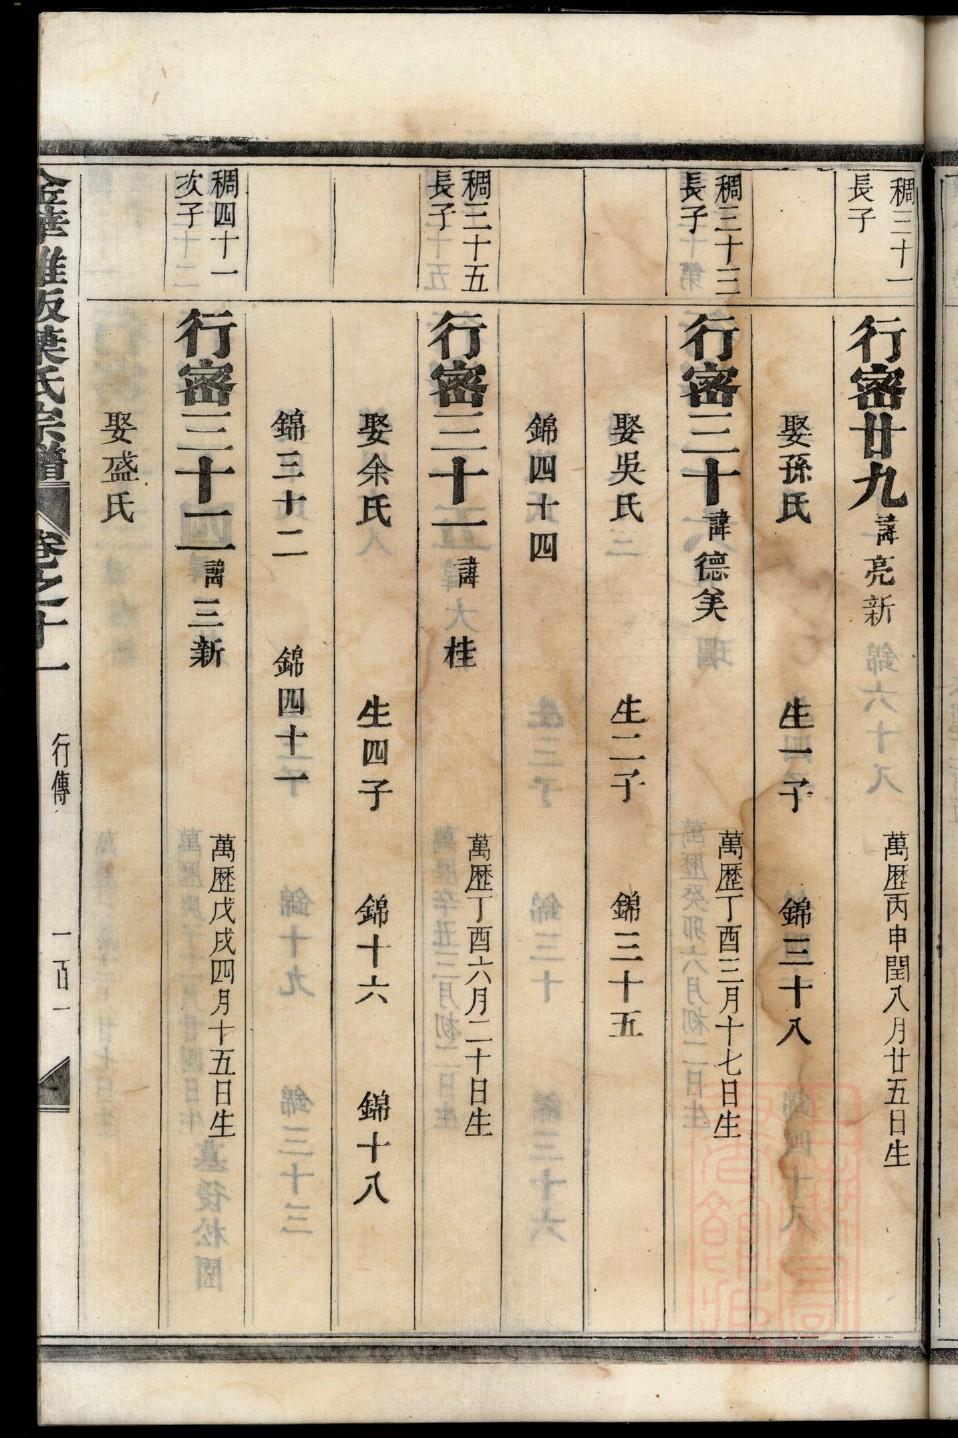 稠三十一
長子
行密廿九 諱亮新
萬歷丙申閏八月廿五日生
娶孫氏 生一子 錦三十八
稠三十三
長子
行密三十 諱德美
萬歷丁酉三月十七日生
娶吳氏 生二子 錦三十五
錦四十四
稠三十五
長子
行密三十一 諱桂
萬歷丁酉六月二十日生
娶余氏 生四子 錦十六 錦十八
錦三十二 錦四十一
稠四十一
次子
行密三十二 諱三新
萬歷戊戌四月十五日生
娶盛氏
葉氏宗譜 卷之十一 行傳 一百一